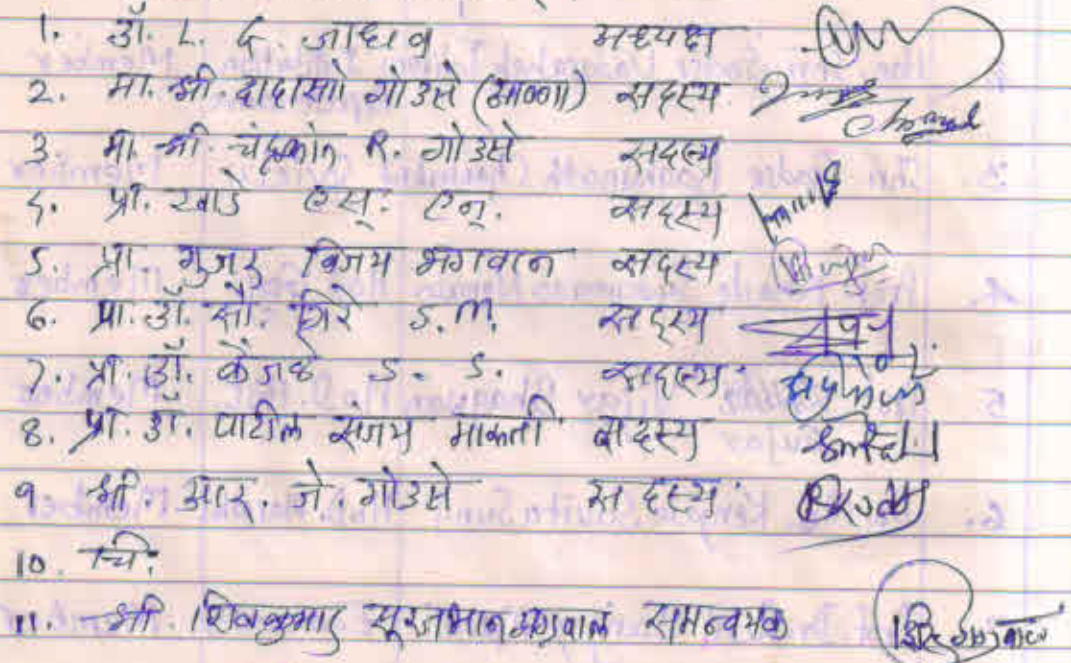 1. डॉ. L. G. जाधव अध्यक्ष
2. मा. श्री. दादासो गोडसे (आण्णा) सदस्य
3. मा. श्री. चंद्रकांत R. गोडसे सदस्य
4. प्रा. खाडे एस. एन. सदस्य
5. प्रा गुजर विजय भगवान सदस्य
6. प्रा. डॉ. सौ. हिरे S. M. सदस्य
7. प्रा. डॉ. केंजळे S. S. सदस्य
8. प्रा. डॉ. पाटील संजय मारुती सदस्य
9. श्री. आर. जे गोडसे सदस्य
10. चि.
11. श्री. शिवकुमार सूरजभान अग्रवाल समन्वयक